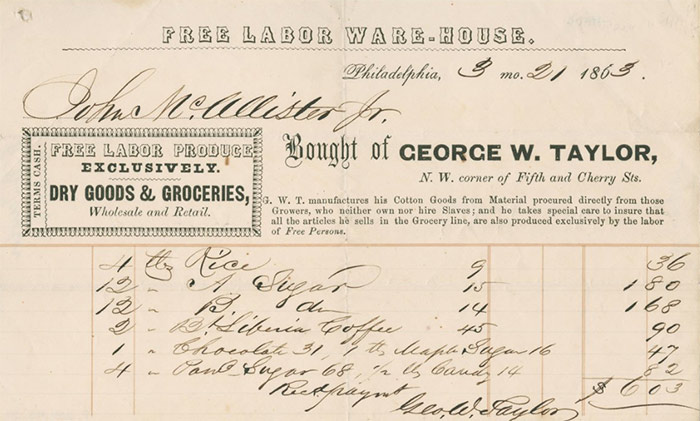 FREE LABOR WARE-HOUSE.
Philadelphia, 3 mo. 21 1863.
John McAllister Jr.
TERMS CASH.
FREE LABOR PRODUCE
EXCLUSIVELY.
DRY GOODS & GROCERIES,
Wholesale and Retail.
Bought of GEORGE W. TAYLOR,
N. W. corner of Fifth and Cherry Sts.
G. W. T. manufactures his Cotton Goods from Material procured directly from those
Growers, who neither own nor hire Slaves; and he takes special care to insure that
all the articles he sells in the Grocery line, are also produced exclusively by the labor
of Free Persons.
4 lbs Rice 9 36
12 " A. Sugar 15 180
12 " B. do 14 168
2 " Liberia Coffee 45 90
1 " Chocolate 31, 1 lb Maple Sugar 16 47
4 " Sugar 68, ½ lb Candy 14 82
Recd paymt $603
Geo. W. Taylor